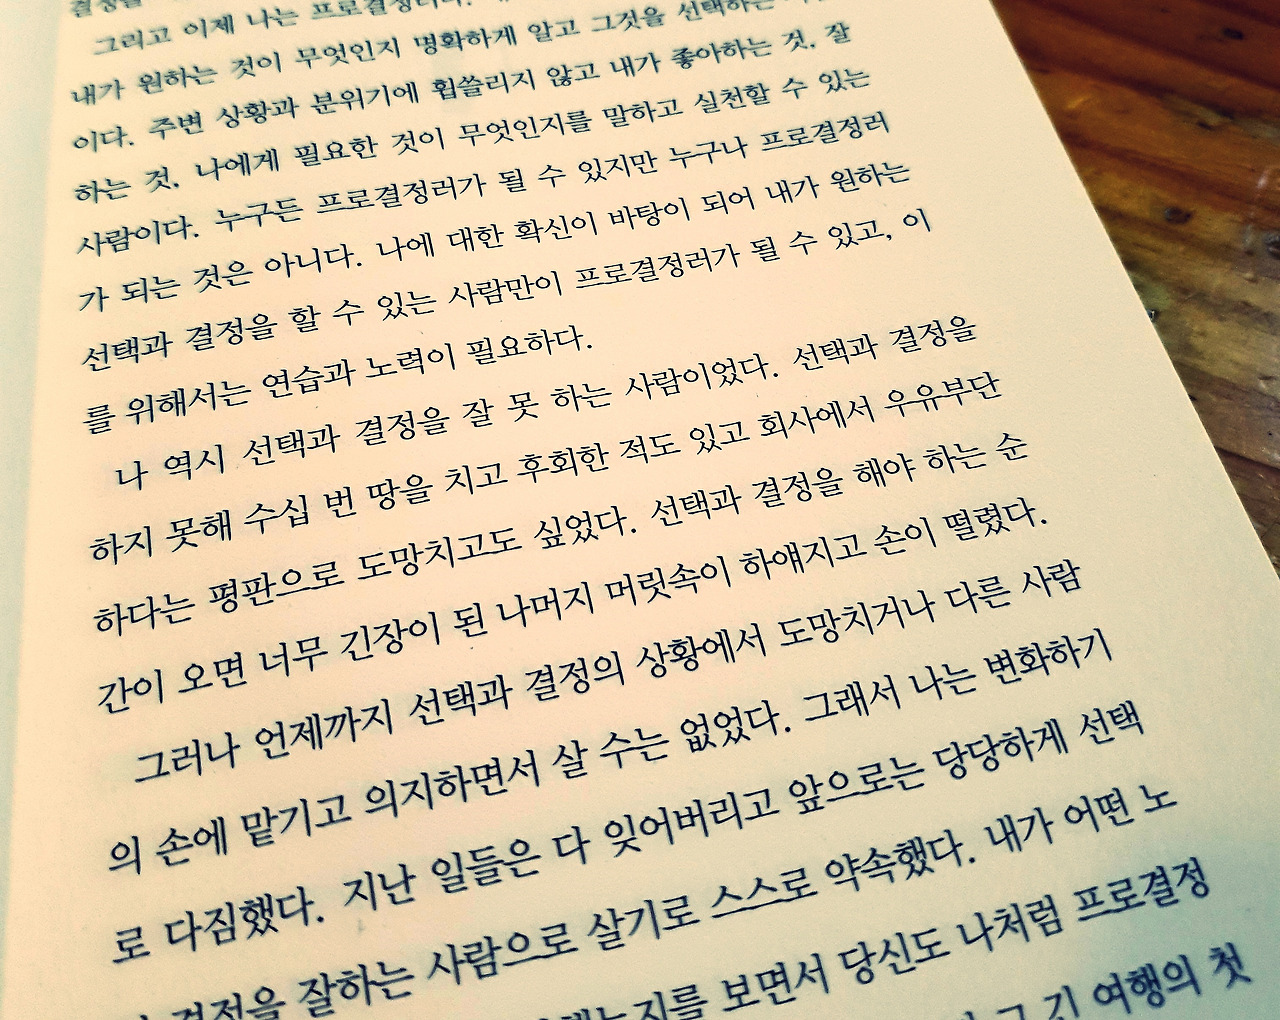 결정을
그리고 이제 나는 프로결정러다.
내가 원하는 것이 무엇인지 명확하게 알고 그것을 선택하는
이다. 주변 상황과 분위기에 휩쓸리지 않고 내가 좋아하는 것. 잘
하는 것. 나에게 필요한 것이 무엇인지를 말하고 실천할 수 있는
사람이다. 누구든 프로결정러가 될 수 있지만 누구나 프로결정러
가 되는 것은 아니다. 나에 대한 확신이 바탕이 되어 내가 원하는
선택과 결정을 할 수 있는 사람만이 프로결정러가 될 수 있고, 이
를 위해서는 연습과 노력이 필요하다.
나 역시 선택과 결정을 잘 못 하는 사람이었다. 선택과 결정을
하지 못해 수십 번 땅을 치고 후회한 적도 있고 회사에서 우유부단
하다는 평판으로 도망치고도 싶었다. 선택과 결정을 해야 하는 순
간이 오면 너무 긴장이 된 나머지 머릿속이 하얘지고 손이 떨렸다.
그러나 언제까지 선택과 결정의 상황에서 도망치거나 다른 사람
의 손에 맡기고 의지하면서 살 수는 없었다. 그래서 나는 변화하기
로 다짐했다. 지난 일들은 다 잊어버리고 앞으로는 당당하게 선택
결정을 잘하는 사람으로 살기로 스스로 약속했다. 내가 어떤 노
보면서 당신도 나처럼 프로결정
그 긴 여행의 첫